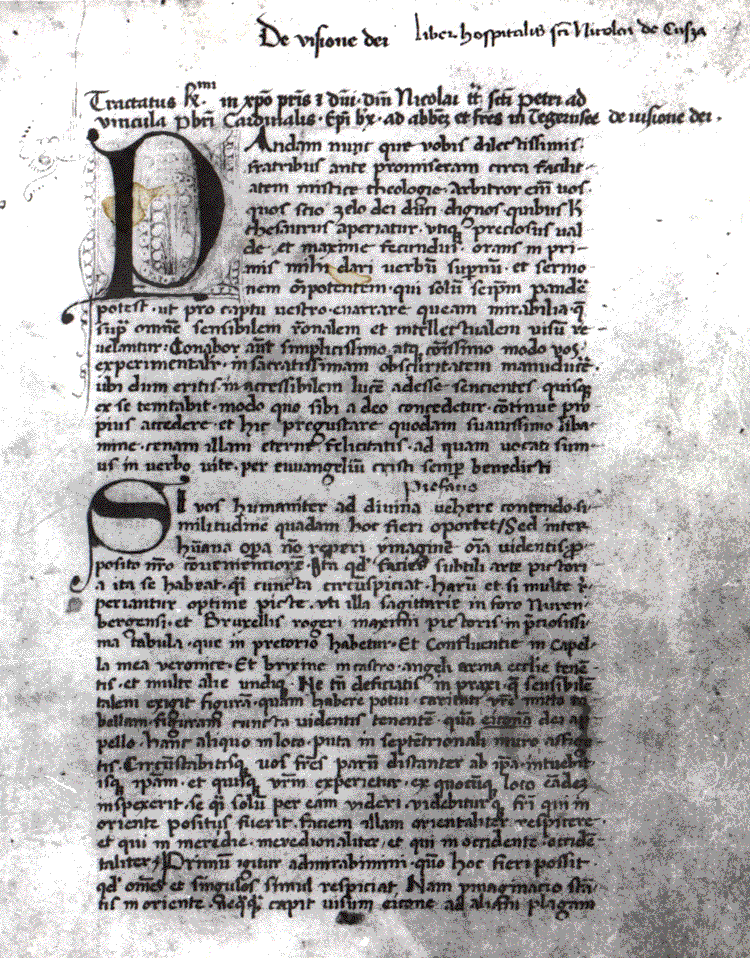 De visione dei liber hospitalis sči Nicolai de Cusza
Tractatus in xpō pr̄is ⁊ dn̄i dn̄i Nicolai tt̄ sčti petri ad
vincula pbr̄i Cardinalis Ep̄i bx̄ ad abbēz et frēs in Tegernsee de uisione dei
DAndam nunc que vobis dilectissimis
fratribus ante promiseram circa facilit
atem mistice theologie Arbitror em̄ uos
quos scio zelo dei duci dignos quibus h̄
thesaurus aperiatur vtiqꝫ preciosus ual
de et maxime fecundus orans in pri
mis mihi dari uerbū supnū et sermo
nem om̄ipotentem qui solū seip̄m pandē
potest ut pro captu uestro enarrare queam mirabilia q̄
sup omnē sensibilem rōnalem et intellectualem visū re
uelantur Conabor aūt simplicissimo atqꝫ cōissimo modo vos
experimentalr̄ in sacratissimam obscuritatem manuducē
ubi dum eritis in accessibilem lucē adesse sencientes quisqꝫ
ex se temtabit modo quo sibi a deo concedetur cōtinue pro
pius accedere et hic pregustare quodam suauissimo liba
mine cenam illam eterne felicitatis ad quam uocati sum
us in uerbo vite per euuangeliū cristi semp benedicti
Prefacio
SI vos humaniter ad diuina uehere contendo si
militudine quadam hoc fieri oportet Sed inter
hūana opa nō reperi ymaginē oīa uidentis p
posito nr̄o cōuenienciorē Ita qd facies subtili arte pictori
a ita se habeat q̄i cuncta circūspiciat Harū et si multe r̄
periantur optime picte vti illa sagittarie in foro Nuren
bergensi et Bruxellis rogeri maximi pictoris in p̄ciosissi
ma tabula que in pretorio habetur Et Confluentie in Capel
la mea veronice Et brixine in castro angeli arma ecclie tenē
tis et multe alie undiqꝫ Ne tn̄ deficiatis in praxi q̄ sensibilē
talem exigit figurā quam habere potui caritati vr̄e mitto ta
bellam figuram cuncta uidentis tenentē quā eicona dei ap
pello hanc aliquo in loco puta in septētrionali muro affige
tis Circūstabitisqꝫ uos frēs parū distanter ab ip̄a intuebit
isqꝫ ip̄am et quisqꝫ vr̄m experietur ex quocūqꝫ loco eādē
inspexerit se q̄i solū per eam videri videbiturqꝫ fri qui in
oriente positus fuerit faciem illam orientaliter respicere
et qui in meredie meredionaliter et qui in occidente occidē
taliter Primū igitur admirabimini quō hoc fieri possit
qd om̄es et singulos simul respiciat Nam ymaginacio stā
tis in oriente neqqꝫ capit uisum eicone ad aliam plagam